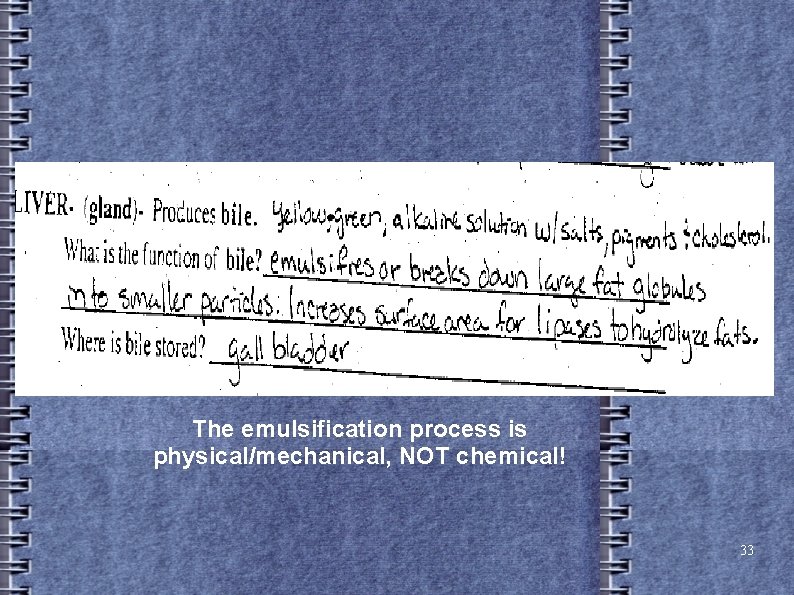 LIVER- (gland)- Produces bile. Yellow-green, alkaline solution w/salts, pigments & cholesterol.
What is the function of bile? emulsifies or breaks down large fat globules
into smaller particles. Increases surface area for lipases to hydrolyze fats.
Where is bile stored? gall bladder
The emulsification process is
physical/mechanical, NOT chemical!
33